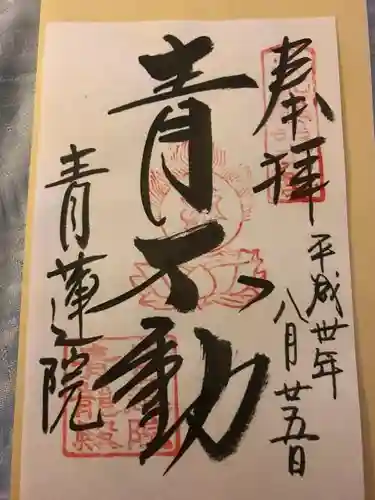 奉拝
平成丗年
八月廿五日
青不動
青蓮院